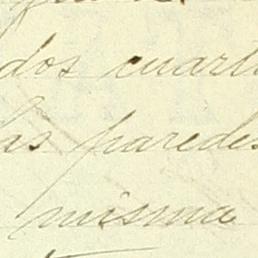 dos cuart
las paredes
misma